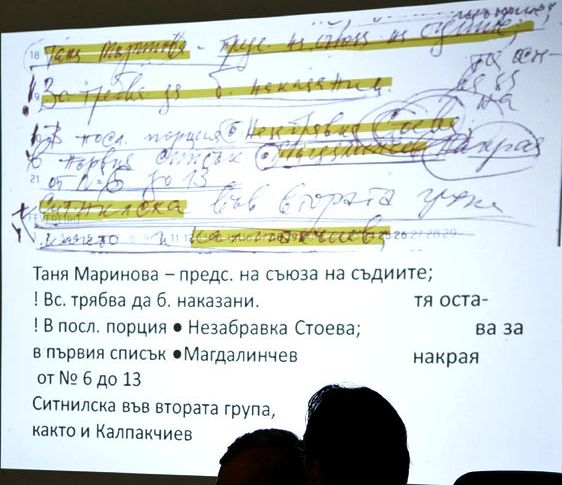 18 Таня Маринова - предс. на съюза на съдиите;
! Вс. трябва да б. наказани
тя оста-
ва за
! В посл. порция • Незабравка Стоева
в първия списък • Магдалинчев накрая
21 от № 6 до 13
Ситнилска във втората група
FEVEREIRO
както и Калпакчиев
Таня Маринова – предс. на съюза на съдиите;
! Вс. трябва да б. наказани. тя оста-
! В посл. порция ● Незабравка Стоева; ва за
в първия списък ●Магдалинчев накрая
от № 6 до 13
Ситнилска във втората група,
както и Калпакчиев